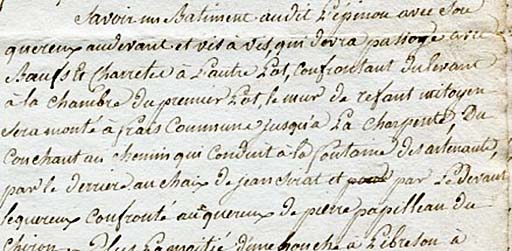 Savoir un Batiment audit L'épinou avec Son
quereux audevant et vis à vis, qui devra passage avec
Bœufs Et Charrete à L'autre Lot, Confrontant du levant
à la chambre du premier Lot, le mur de refant mitoyen
Sera monté à frais Commune jusqu'a La Charpente, Du
Couchant au chemin qui conduit à la fontaine des artenaude,
par le derriere au chaix de jean Sirat et par Le devant
lequereux confronté au quereux de pierre papilleau du
Chiron, Plus La moitié d'une ouche à Lebreson à